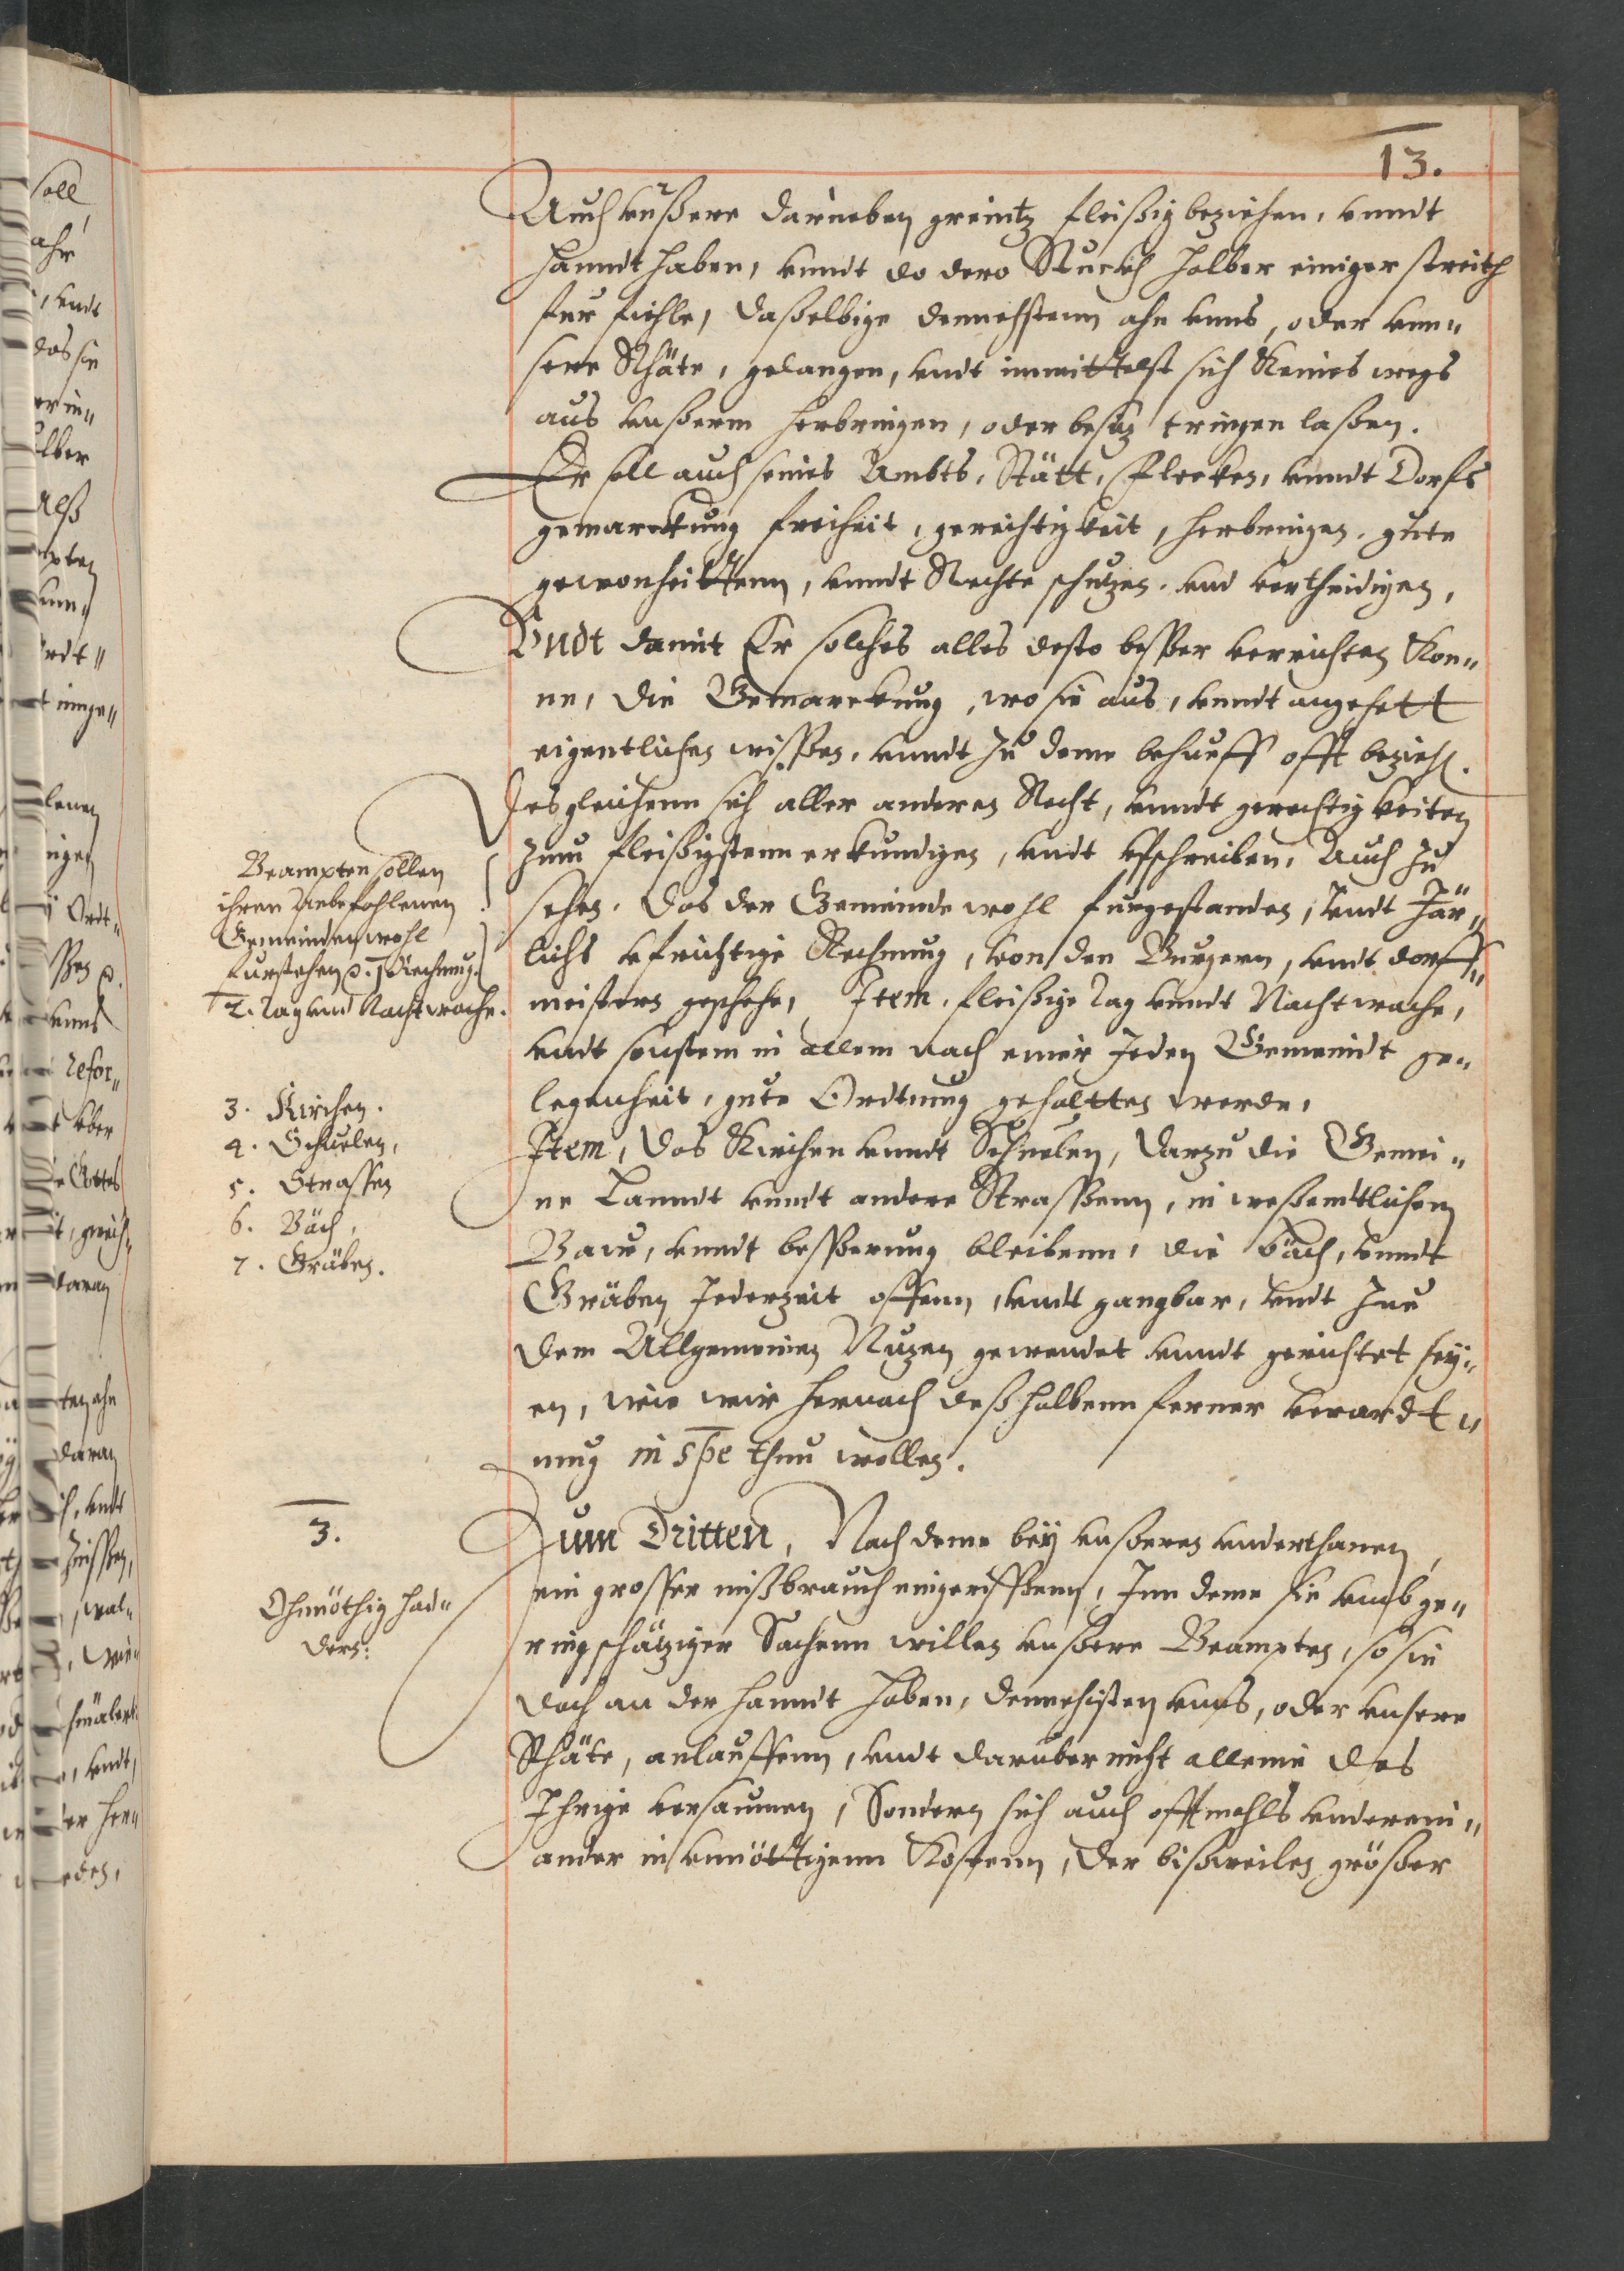 13.
Auch unßere darneben greintz fleißig beziehen, unndt
hanndt haben, unndt do dero Stuckh halber einiger streith
fur fiehle, daßelbige dennechstenn ahn unns, oder unn„
sere Rhäte, gelangen, undt inmittelst sich Keines wegs
aus unßerm herbringen, oder besiz tringen laßen.
Er soll auch seines Ambts, Stätt, Flecken, unndt Dorfs
gemarckung freiheit, gerechtigkeit, herbringen, gute
gewonheittenn, unndt Rechte schutzen und vertheidigen,
Undt damit Er solches alles desto besser verrichten Kön„
ne, die Gemarckung, wo sie aus, unndt angehett
eigentlichen wissen, unndt zu deme behueff offt bezieh.
Desgleichenn sich aller anderen Recht, unndt gerechtigkeiten
zum fleißigstenn erkundigen, undt ufschreiben, Auch zu
sehen, das der Gemeinde wohl furgestanden, Undt Jär„
lichs ufrichtige Rechnung, von den Burgern, undt dorff„
meistern geschehe, Item, fleißige tag unndt Nachtwache,
undt sonstenn in allem nach einer Jeden Gemeindt ge„
legenheit, gute Ordtnung gehaltten werde,
Item, das Kirchen unndt Schuelen, darzu die Gemei„
ne Lanndt unndt andere Strassenn, in weßentlichem
Baw, unndt besserung bleibenn, die bäch, unndt
Gräben Jederzeit offenn, undt gangbar, undt zue
dem Allgemeinen Nuzen gewendet unndt gerichtet sey„
en, wie wir hernach deßhalbenn ferner verordt„
nung in spe thun wollen.
Beampten sollen
ihren Anbefohlenen
Gemeinden wohl
furstehen 1 Rechnung.
2. Tag und Nacht wache.
3. Kirchen.
4. Schuelen,
5. Strassen
6. Bäch,
7. Gräben.
3.
Ohnnöthig had„
dern:
Zum Dritten, Nach deme bey unßeren underthanen,
ein grosser mißbrauch eingerissenn, Inn deme sie umb ge„
ringschätziger Sachenn willen unßere Beampten, so sie
doch an der hanndt haben, dennechsten unns, oder unsere
Rhäte, anlauffenn, undt daruber nicht alleine das
Ihrige versaumen, Sondern sich auch offtmahls underein„
ander in unnöttigenn Kostenn, der bißweilen größer